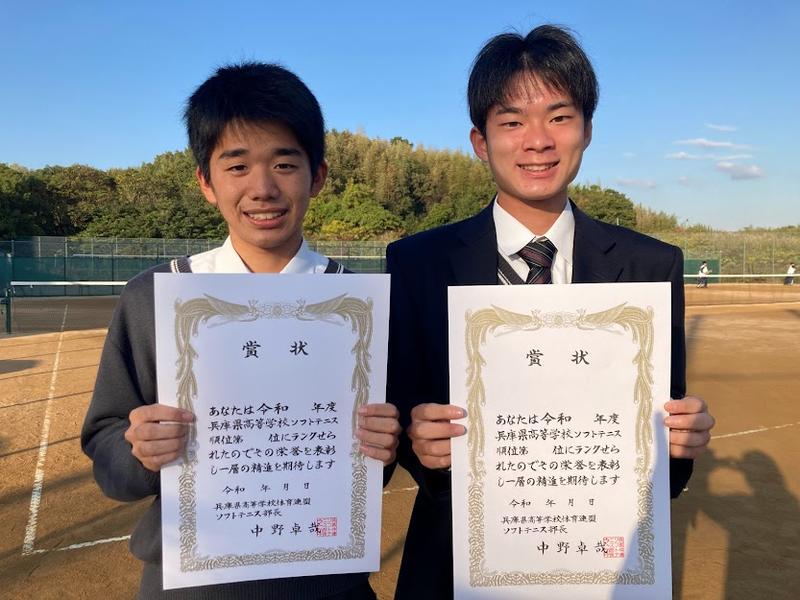 賞状
あなたは令和 年度
兵庫県高等学校ソフトテニス
順位第 位にランクせら
れたのでその栄誉を表彰
し一層の精進を期待します
令和 年 月 日
兵庫県高等学校体育連盟
ソフトテニス部長
中野卓哉
賞状
あなたは令和 年度
兵庫県高等学校ソフトテニス
順位第 位にランクせら
れたのでその栄誉を表彰
し一層の精進を期待します
令和 年 月 日
兵庫県高等学校体育連盟
ソフトテニス部長
中野卓哉